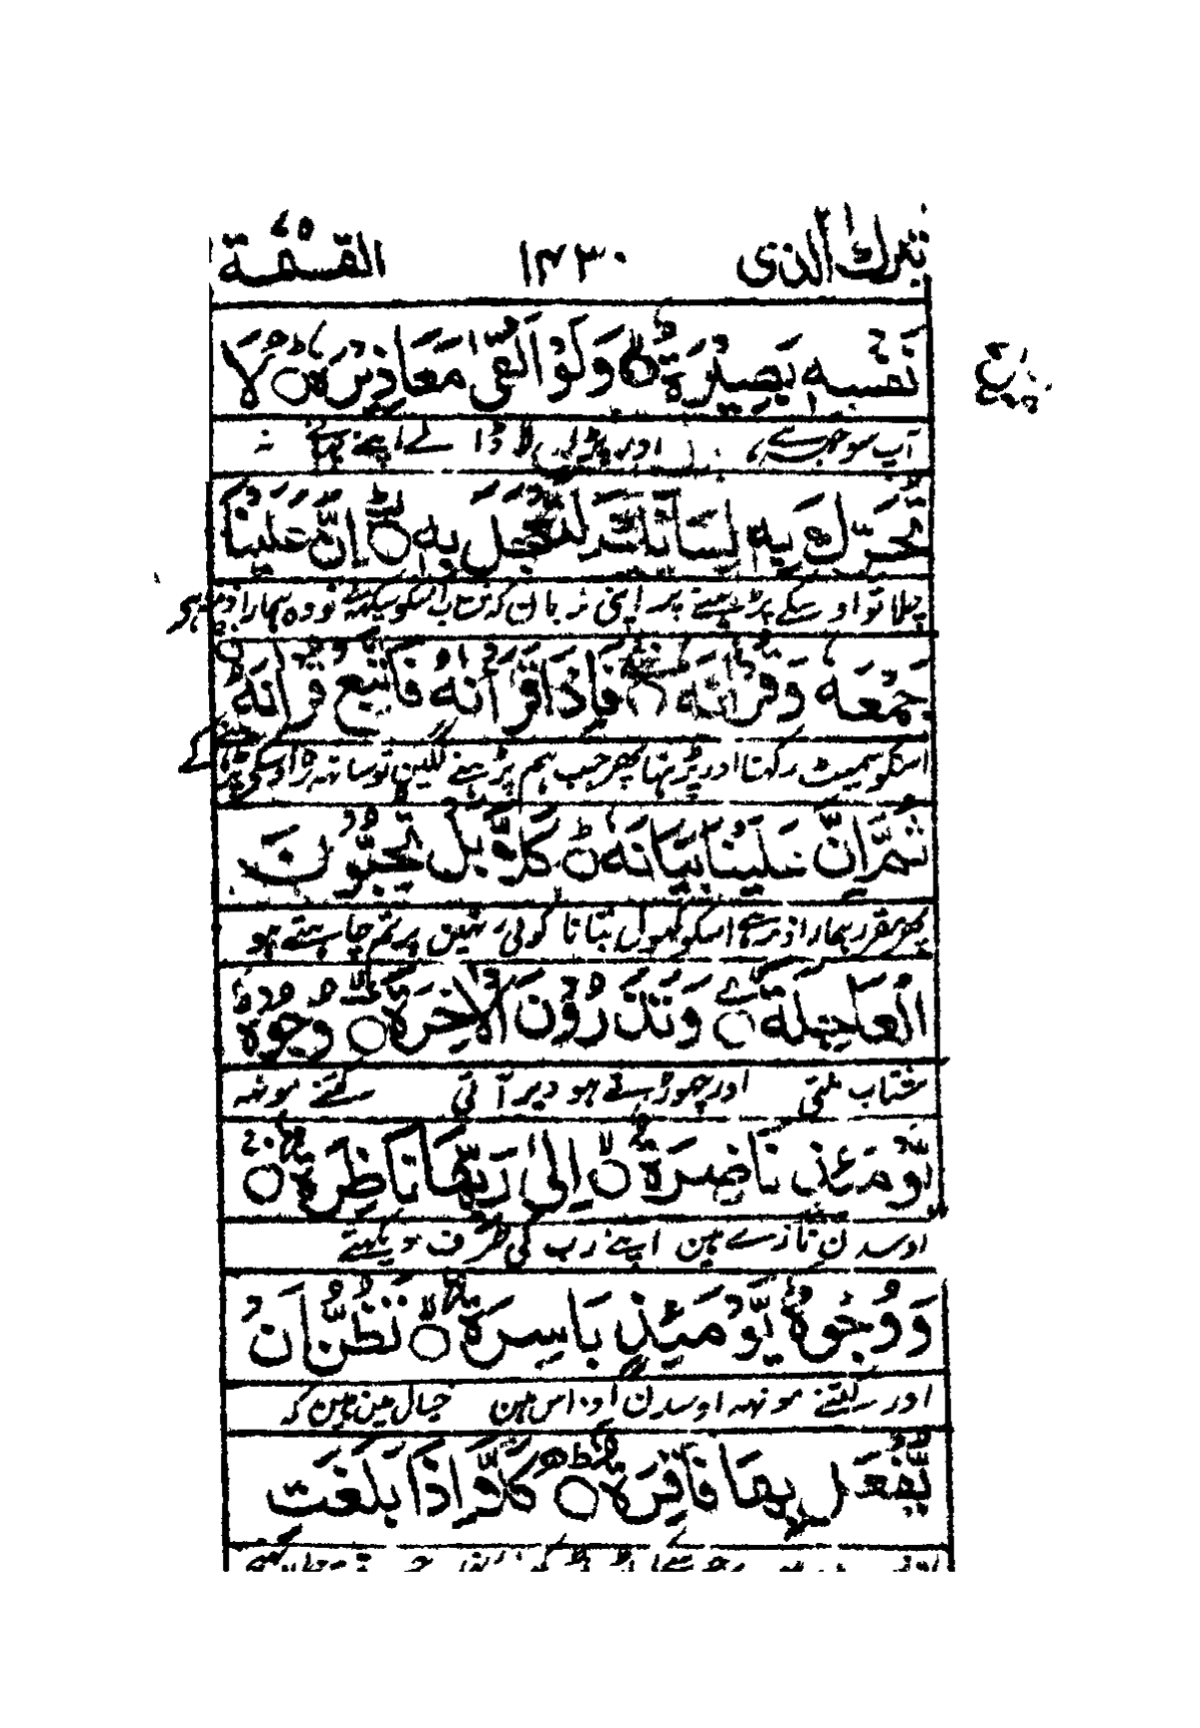 تبرك الذى ١٤٣٠ القيمة
نَفْسِهٖ بَصِيْرَةٌ ۙ وَّلَوْ اَلْقٰى مَعَاذِيْرَهٗ ؕ لَا
آپ سوجھ ہے اور پڑا لا ڈالے اپنے بہانے نہ
تُحَرِّكْ بِهٖ لِسَانَكَ لِتَعْجَلَ بِهٖ ؕ اِنَّ عَلَيْنَا
چلا تو اوسکے پڑہنے پر اپنی زبان کہ شتاب اسکو سیکھے تو وہ ہمارا ذمہ ہے
جَمْعَهٗ وَقُرْاٰنَهٗ ۚ فَاِذَا قَرَاْنٰهُ فَاتَّبِعْ قُرْاٰنَهٗ ۚ
اسکو سمیٹ رکہنا اور پڑہنا پھر جب ہم پڑہنے لگین تو ساتہہ رہ اوسکے پڑہنے کے
ثُمَّ اِنَّ عَلَيْنَا بَيَانَهٗ ؕ كَلَّا بَلْ تُحِبُّوْنَ
پھر مقرر ہمارا ذمہ ہے اسکو کھول بتانا کوئی نہین پر تم چاہتے ہو
الْعَاجِلَةَ ۙ وَتَذَرُوْنَ الْاٰخِرَةَ ؕ وُجُوْهٌ
شتاب ملتی اور چھوڑتے ہو دیر آتی کتنے مونہہ
يَّوْمَئِذٍ نَّاضِرَةٌ ۙ اِلٰى رَبِّهَا نَاظِرَةٌ ۚ
اوسدن تازے ہین اپنے رب کی طرف دیکہتے
وَوُجُوْهٌ يَّوْمَئِذٍ بَاسِرَةٌ ۙ تَظُنُّ اَنْ
اور کتنے مونہہ اوسدن اوداس ہین خیال مین ہین کہ
يُّفْعَلَ بِهَا فَاقِرَةٌ ؕ كَلَّا اِذَا بَلَغَتِ